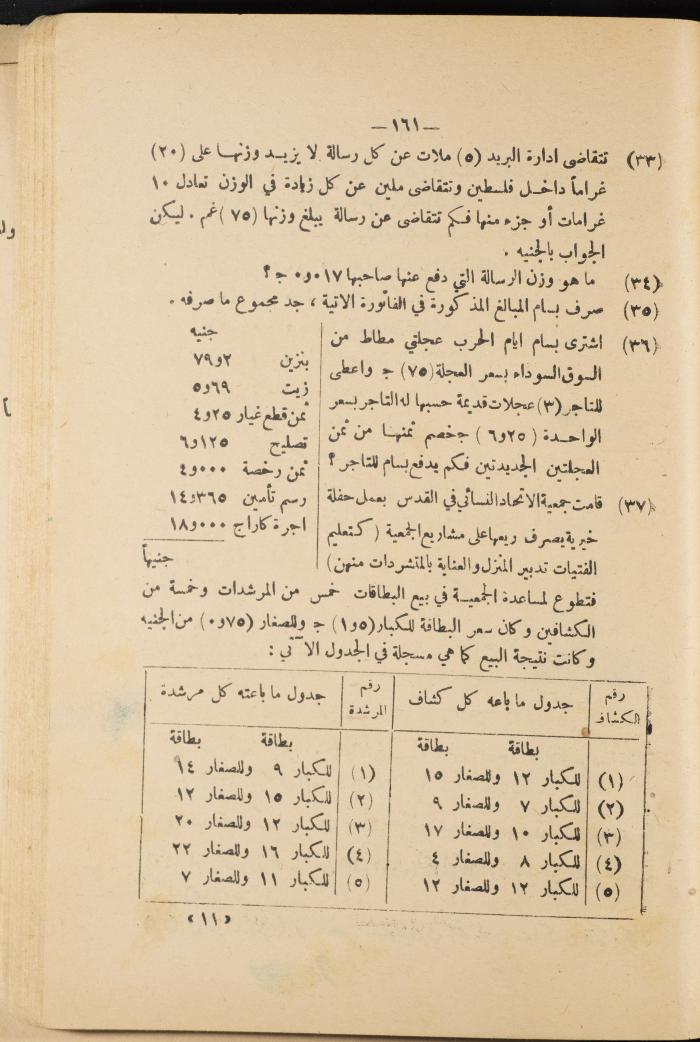 — ١٦١ —
(٣٣) تتقاضى ادارة البريد (٥) ملات عن كل رسالة لا يزيد وزنها على (٢٠)
غراماً داخل فلسطين وتتقاضى ملين عن كل زيادة في الوزن تعادل ١٠
غرامات أو جزء منها فكم تتقاضى عن رسالة يبلغ وزنها (٧٥) غم . ليكن
الجواب بالجنيه .
(٣٤) ما هو وزن الرسالة التي دفع عنها صاحبها ٠١٧و٠ ج ؟
(٣٥) صرف بسام المبالغ المذكورة في الفاتورة الاتية ، جد مجموع ما صرفه .
(٣٦) اشترى بسام ايام الحرب عجلتي مطاط من
السوق السوداء بسعر العجلة (٧٥) ج واعطى
للتاجر (٣) عجلات قديمة حسبها له التاجر بسعر
الواحدة (٢٥و٦) ج خصم ثمنها من ثمن
العجلتين الجديدتين فكم يدفع بسام للتاجر ؟
(٣٧) قامت جمعية الاتحاد النسائي في القدس بعمل حفلة
خيرية يصرف ريعها على مشاريع الجمعية (كتعليم
الفتيات تدبير المنزل والعناية بالمتشردات منهن)
جنيه
بنزين ٢و٧٩
زيت ٦٩و٥
ثمن قطع غيار ٢٥و٤
تصليح ١٢٥و٦
ثمن رخصة ٠٠٠و٤
رسم تأمين ٣٦٥و١٤
اجرة كاراج ٠٠٠و١٨
جنيهاً
فتطوع لمساعدة الجمعية في بيع البطاقات خمس من المرشدات وخمسة من
الكشافين وكان سعر البطاقة للكبار (٥و١) ج وللصغار (٧٥و٠) من الجنيه
وكانت نتيجة البيع كما هي مسجلة في الجدول الآتي :
رقم الكشاف جدول ما باعه كل كشاف رقم المرشدة جدول ما باعته كل مرشدة
بطاقة بطاقة بطاقة بطاقة
(١) للكبار ١٢ وللصغار ١٥ (١) للكبار ٩ وللصغار ١٤
(٢) للكبار ٧ وللصغار ٩ (٢) للكبار ١٥ وللصغار ١٢
(٣) للكبار ١٠ وللصغار ١٧ (٣) للكبار ١٢ وللصغار ٢٠
(٤) للكبار ٨ وللصغار ٤ (٤) للكبار ١٦ وللصغار ٢٢
(٥) للكبار ١٢ وللصغار ١٢ (٥) للكبار ١١ وللصغار ٧
«١١»